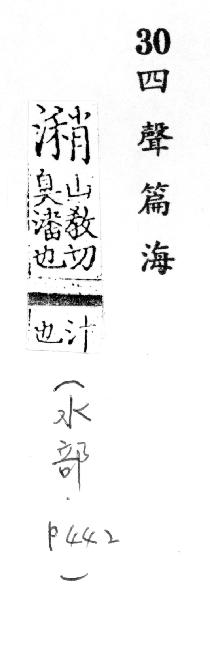 30四聲篇海
潲
山教切
臭潘也
汁
也
(水部.p442)